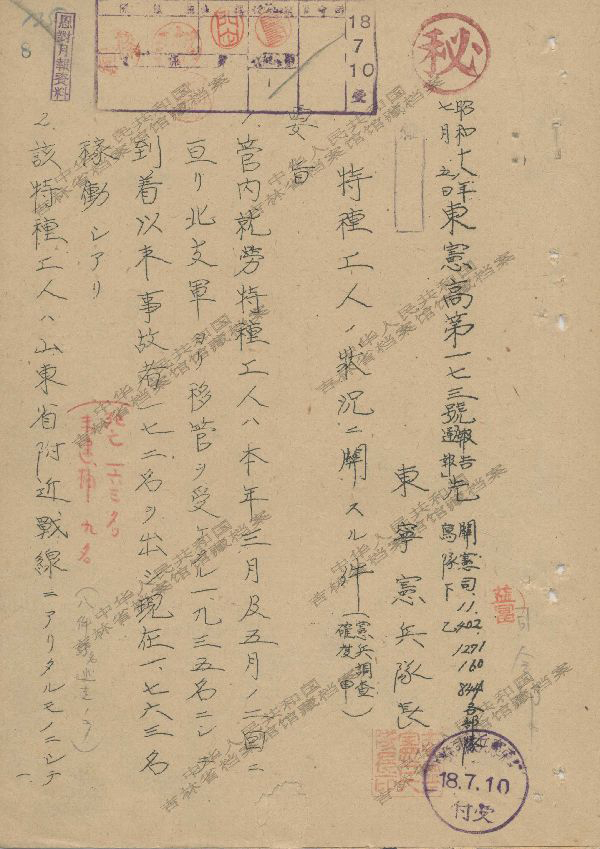 秘
18
7
10
受
恩對月報資料
8
昭和十八年七月五日東憲高第一七三號
報告
通報
先
關憲司.11.402.1271
160
844各部隊
馬 隊下 乙
東寧憲兵隊長
特種工人ノ狀況ニ關スル件
(憲兵調査
確度甲)
要旨
1. 管内就勞特種工人ハ本年三月及五月ノ二回ニ
亘リ北支軍ヨリ移管ヲ受ケタル一九三五名ニシテ
到着以来事故者一七二名ヲ出シ現在一、七六三名
稼働シアリ
死亡一六三名
逮捕九名
2. 該特種工人ハ山東省附近戰線ニアリタルモノニシテ
一
18.7.10
受付
中华人民共和国
吉林省档案馆馆藏档案